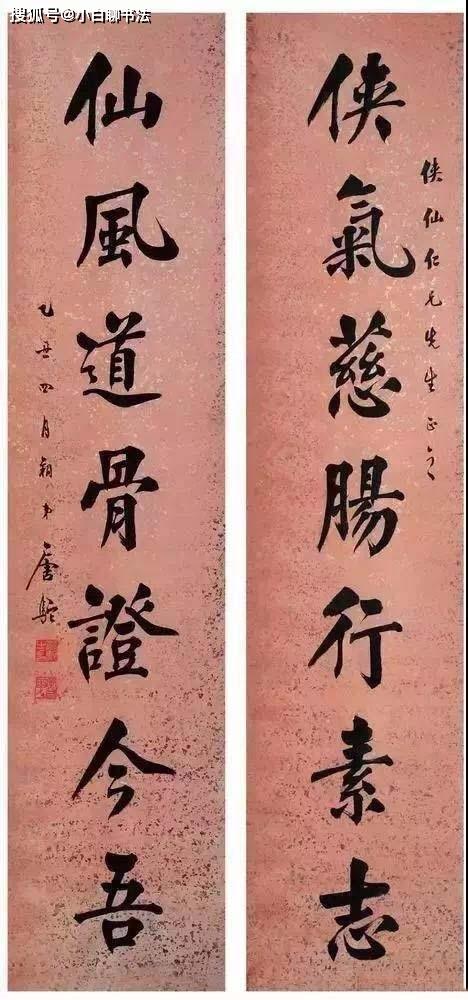 搜狐号@小白聊书法
俠仙仁兄先生正
俠氣慈腸行素志
仙風道骨證今吾
乙丑四月朔弟唐駝